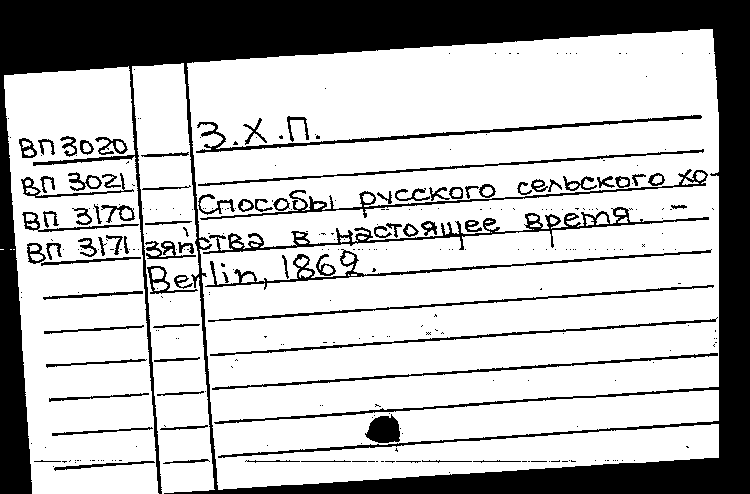 З.Х.П.
ВП 3020
ВП 3021
ВП 3170
ВП 3171
Способы русского сельского хо-
зяйства в настоящее время. –
Berlin, 1869.